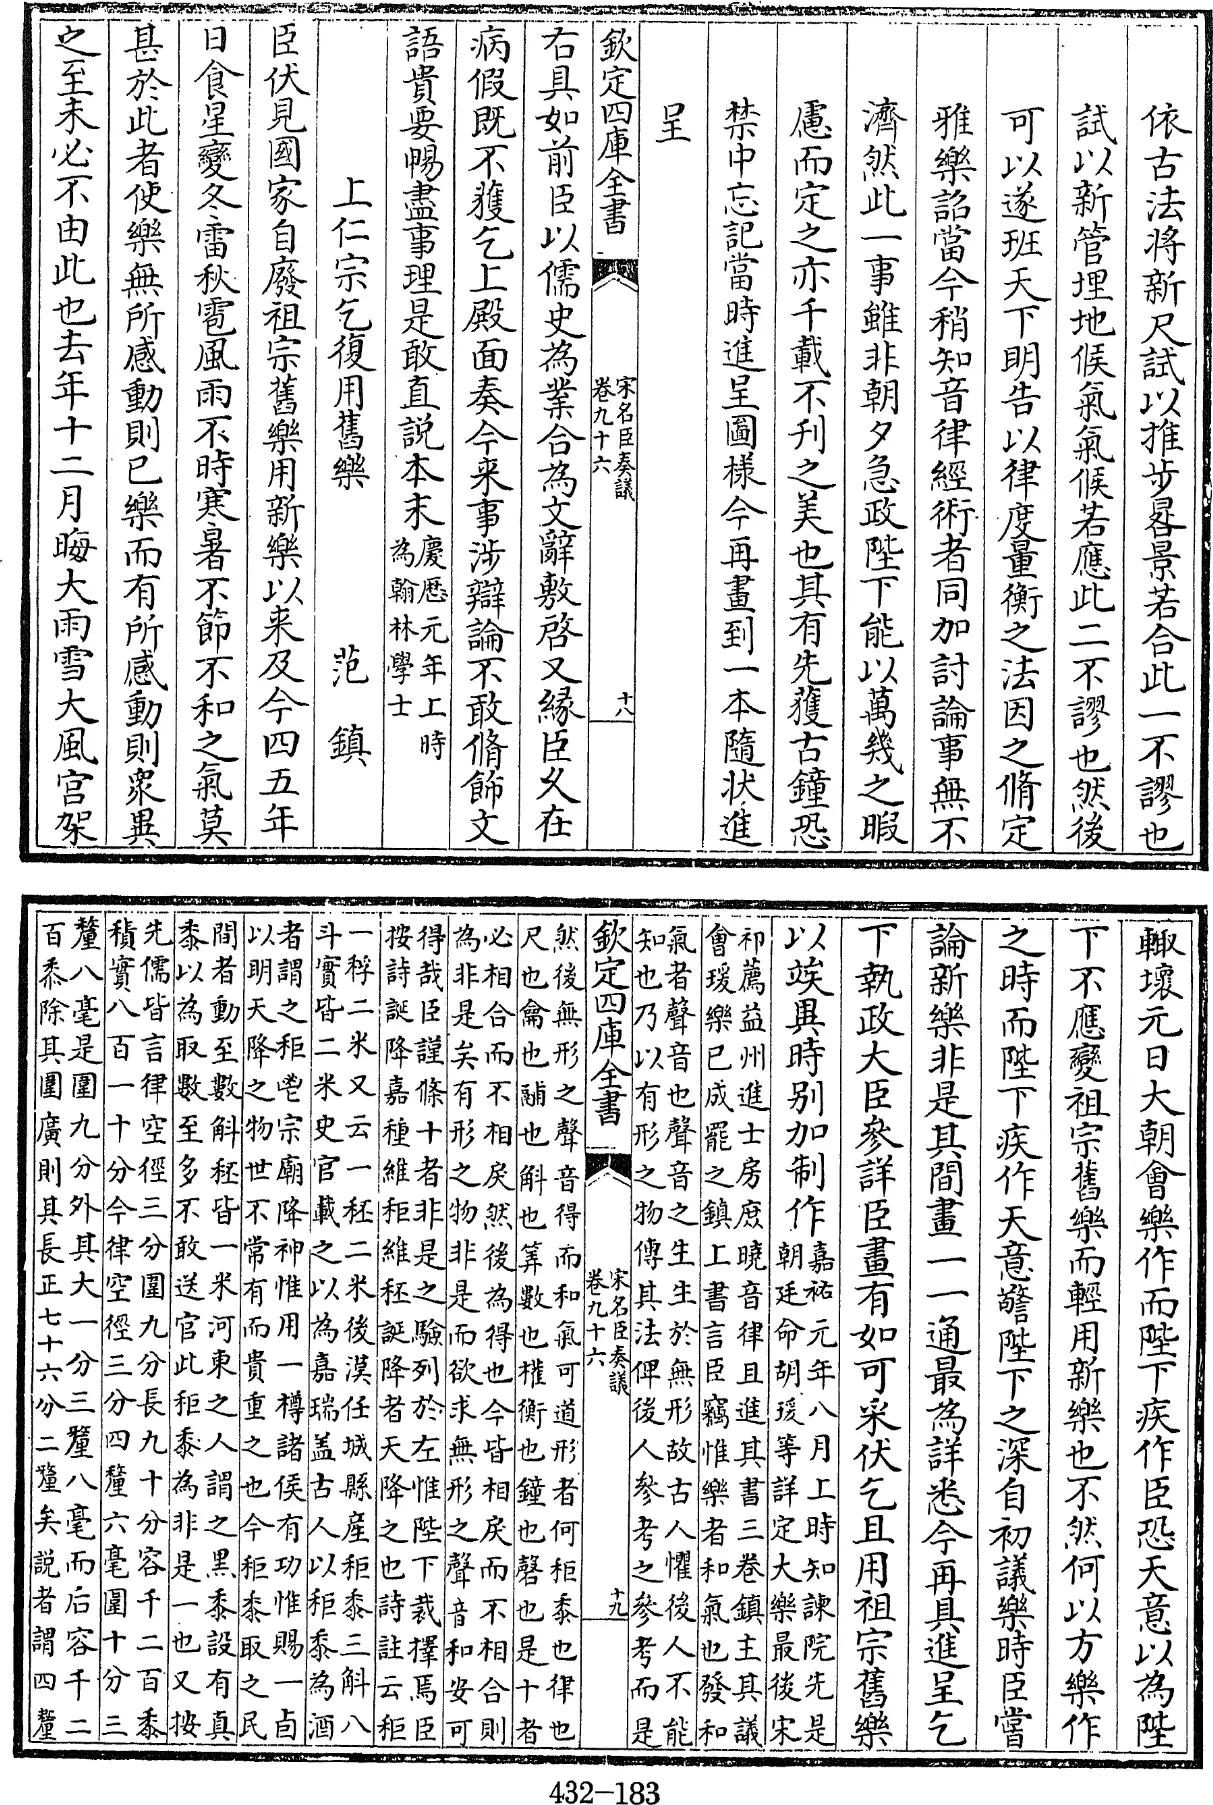 依古法將新尺試以推步晷景若合此一不謬也
試以新管埋地候氣氣候若應此二不謬也然後
可以遂班天下明告以律度量衡之法因之脩定
雅樂詔當今稍知音律經術者同加討論事無不
濟然此一事雖非朝夕急政陛下能以萬幾之暇
慮而定之亦千載不刋之美也其有先獲古鐘恐
禁中忘記當時進呈圖樣今再畫到一本隨狀進
呈
欽定四庫全書
宋名臣奏議
卷九十六
十八
右具如前臣以儒史為業合為文辭敷啓又緣臣久在
病假既不獲乞上殿面奏今来事涉辯論不敢脩飾文
語貴要暢盡事理是敢直説本末
慶厯元年上時
為翰林學士
上仁宗乞復用舊樂
范鎮
臣伏見國家自廢祖宗舊樂用新樂以来及今四五年
日食星變冬雷秋雹風雨不時寒暑不節不和之氣莫
甚於此者使樂無所感動則已樂而有所感動則衆異
之至未必不由此也去年十二月晦大雨雪大風宫架
輙壞元日大朝會樂作而陛下疾作臣恐天意以為陛
下不應變祖宗舊樂而輕用新樂也不然何以方樂作
之時而陛下疾作天意警陛下之深自初議樂時臣嘗
論新樂非是其間畫一一通最為詳悉今再具進呈乞
下執政大臣參詳臣畫有如可采伏乞且用祖宗舊樂
以竢異時别加制作
嘉祐元年八月上時知諫院先是
朝廷命胡瑗等詳定大樂最後宋
祁薦益州進士房庶曉音律且進其書三卷鎮主其議
會瑗樂已成罷之鎮上書言臣竊惟樂者和氣也發和
氣者聲音也聲音之生生於無形故古人懼後人不能
知也乃以有形之物傳其法俾後人參考之參考而是
欽定四庫全書
宋名臣奏議
卷九十六
十九
然後無形之聲音得而和氣可道形者何秬黍也律也
尺也龠也鬴也斛也算數也權衡也鐘也磬也是十者
必相合而不相戾然後為得也今皆相戾而不相合則
為非是矣有形之物非是而欲求無形之聲音和安可
得哉臣謹條十者非是之驗列於左惟陛下裁擇焉臣
按詩誕降嘉種維秬維秠誕降者天降之也詩註云秬
一稃二米又云一秠二米後漢任城縣産秬黍三斛八
斗實皆二米史官載之以為嘉瑞盖古人以秬黍為酒
者謂之秬鬯宗廟降神惟用一樽諸侯有功惟賜一卣
以明天降之物世不常有而貴重之也今秬黍取之民
間者動至數斛秠皆一米河東之人謂之黑黍設有真
黍以為取數至多不敢送官此秬黍為非是一也又按
先儒皆言律空徑三分圍九分長九十分容千二百黍
積實八百一十分今律空徑三分四釐六毫圍十分三
釐八毫是圍九分外其大一分三釐八毫而后容千二
百黍除其圍廣則其長正七十六分二釐矣説者謂四釐
432-183